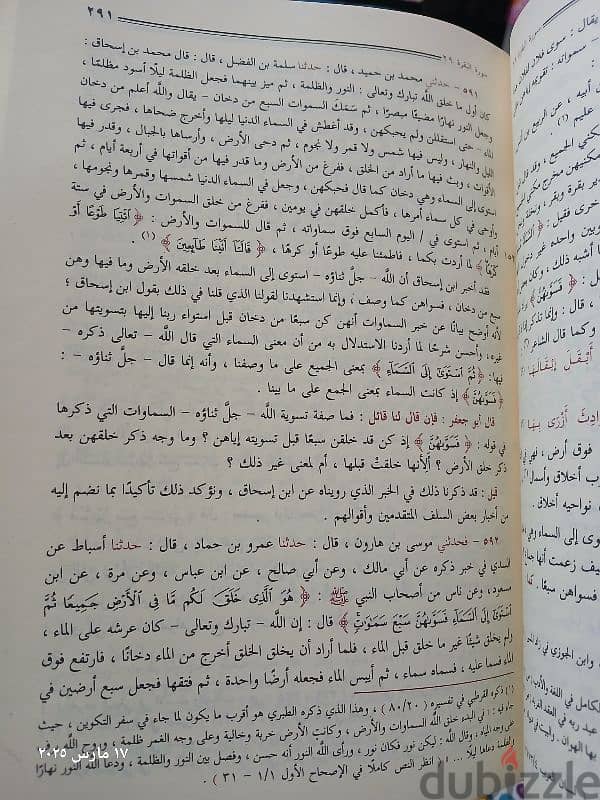 سورة البقرة ٢٩
٢٩١
٥٩١ - حدثني محمد بن حميد ، قال : حدثنا سلمة بن الفضل ، قال : قال محمد بن إسحاق :
كان أول ما خلق الله تبارك وتعالى : النور والظلمة ، ثم ميز بينهما فجعل الظلمة ليلًا أسود مظلمًا ،
وجعل النور نهارًا مضيئًا مبصرًا ، ثم سمَكَ السموات السبع من دخان - يقال والله أعلم من دخان
الماء - حتى استقللن ولم يحبكهن ، وقد أغطش في السماء الدنيا ليلها وأخرج ضحاها ، فجرى فيها
الليل والنهار ، وليس فيها شمس ولا قمر ولا نجوم ، ثم دحى الأرض ، وأرساها بالجبال ، وقدر فيها
الأقوات ، وبث فيها ما أراد من الخلق ، ففرغ من الأرض وما قدر فيها من أقواتها في أربعة أيام ، ثم
استوى إلى السماء وهي دخان كما قال فحبكهن ، وجعل في السماء الدنيا شمسها وقمرها ونجومها ،
وأوحى في كل سماء أمرها ، فأكمل خلقهن في يومين ، ففرغ من خلق السموات والأرض في ستة
أيام ، ثم استوى في / اليوم السابع فوق سماواته ، ثم قال للسموات والأرض : ﴿ ائْتِيَا طَوْعًا أَوْ
كَرْهًا ﴾ لما أردت بكما ، فاطمئنا عليه طوعًا أو كرهًا ، ﴿ قَالَتَا أَتَيْنَا طَائِعِينَ ﴾ (١) .
فقد أخبر ابن إسحاق أن الله - جل ثناؤه - استوى إلى السماء بعد خلقه الأرض وما فيها وهن
سبع من دخان ، فسواهن كما وصف ، وإنما استشهدنا لقولنا الذي قلنا في ذلك بقول ابن إسحاق ؛
لأنه أوضح بيانًا عن خبر السماوات أنهن كن سبعًا من دخان قبل استواء ربنا إليها بتسويتها من
غيره ، وأحسن شرحًا لما أردنا الاستدلال به من أن معنى السماء التي قال الله - تعالى ذكره -
فيها: ﴿ ثُمَّ اسْتَوَىٰ إِلَى السَّمَاءِ ﴾ بمعنى الجميع على ما وصفنا ، وأنه إنما قال - جلَّ ثناؤه - :
﴿ فَسَوَّاهُنَّ ﴾ إذ كانت السماء بمعنى الجمع على ما بينا .
قال أبو جعفر : فإن قال لنا قائل : فما صفة تسوية الله - جل ثناؤه - السماوات التي ذكرها
في قوله : ﴿ فَسَوَّاهُنَّ ﴾ إذ كن قد خلقن سبعًا قبل تسويته إياهن ؟ وما وجه ذكر خلقهن بعد
ذكر خلق الأرض ؟ ألأنها خلقتْ قبلها ، أم لمعنى غير ذلك ؟
قيل : قد ذكرنا ذلك في الخبر الذي رويناه عن ابن إسحاق ، ونؤكد ذلك تأكيدًا بما نضم إليه
من أخبار بعض السلف المتقدمين وأقوالهم .
٥٩٢ - فحدثني موسى بن هارون ، قال : حدثنا عمرو بن حماد ، قال : حدثنا أسباط عن
السدي في خبر ذكره عن أبي مالك ، وعن أبي صالح ، عن ابن عباس ، وعن مرة ، عن ابن
مسعود، وعن ناس من أصحاب النبي ﷺ : ﴿ هُوَ الَّذِي خَلَقَ لَكُم مَّا فِي الْأَرْضِ جَمِيعًا ثُمَّ
اسْتَوَىٰ إِلَى السَّمَاءِ فَسَوَّاهُنَّ سَبْعَ سَمَاوَاتٍ ﴾ قال : إن الله - تبارك وتعالى- كان عرشه على الماء ،
ولم يخلق شيئًا غير ما خلق قبل الماء ، فلما أراد أن يخلق الخلق أخرج من الماء دخانًا ، فارتفع فوق
الماء فسما عليه ، فسماه سماء ، ثم أيبس الماء فجعله أرضًا واحدة ، ثم فتقها فجعل سبع أرضين في
(١) ذكره القرطبي في تفسيره (٨٠/٢٠) ، وهذا الذي ذكره الطبري هو أقرب ما يكون لما جاء في سفر التكوين ، حيث
جاء فيه : في البدء خلق الله السماوات والأرض ، وكانت الأرض خربة وخالية وعلى وجه الغمر ظلمة ، وروح الله
على وجه المياه ، وقال الله: ليكن نور فكان نور ، ورأى الله النور أنه حسن ، وفصل بين النور والظلمة ، ودعا الله النور نهارًا
والظلمة دعاها ليلًا ... ! انظر النص كاملًا في الإصحاح الأول ١/١ - ٣١ ) .
١٧ مارس ٢٠٢٥
dubizzle